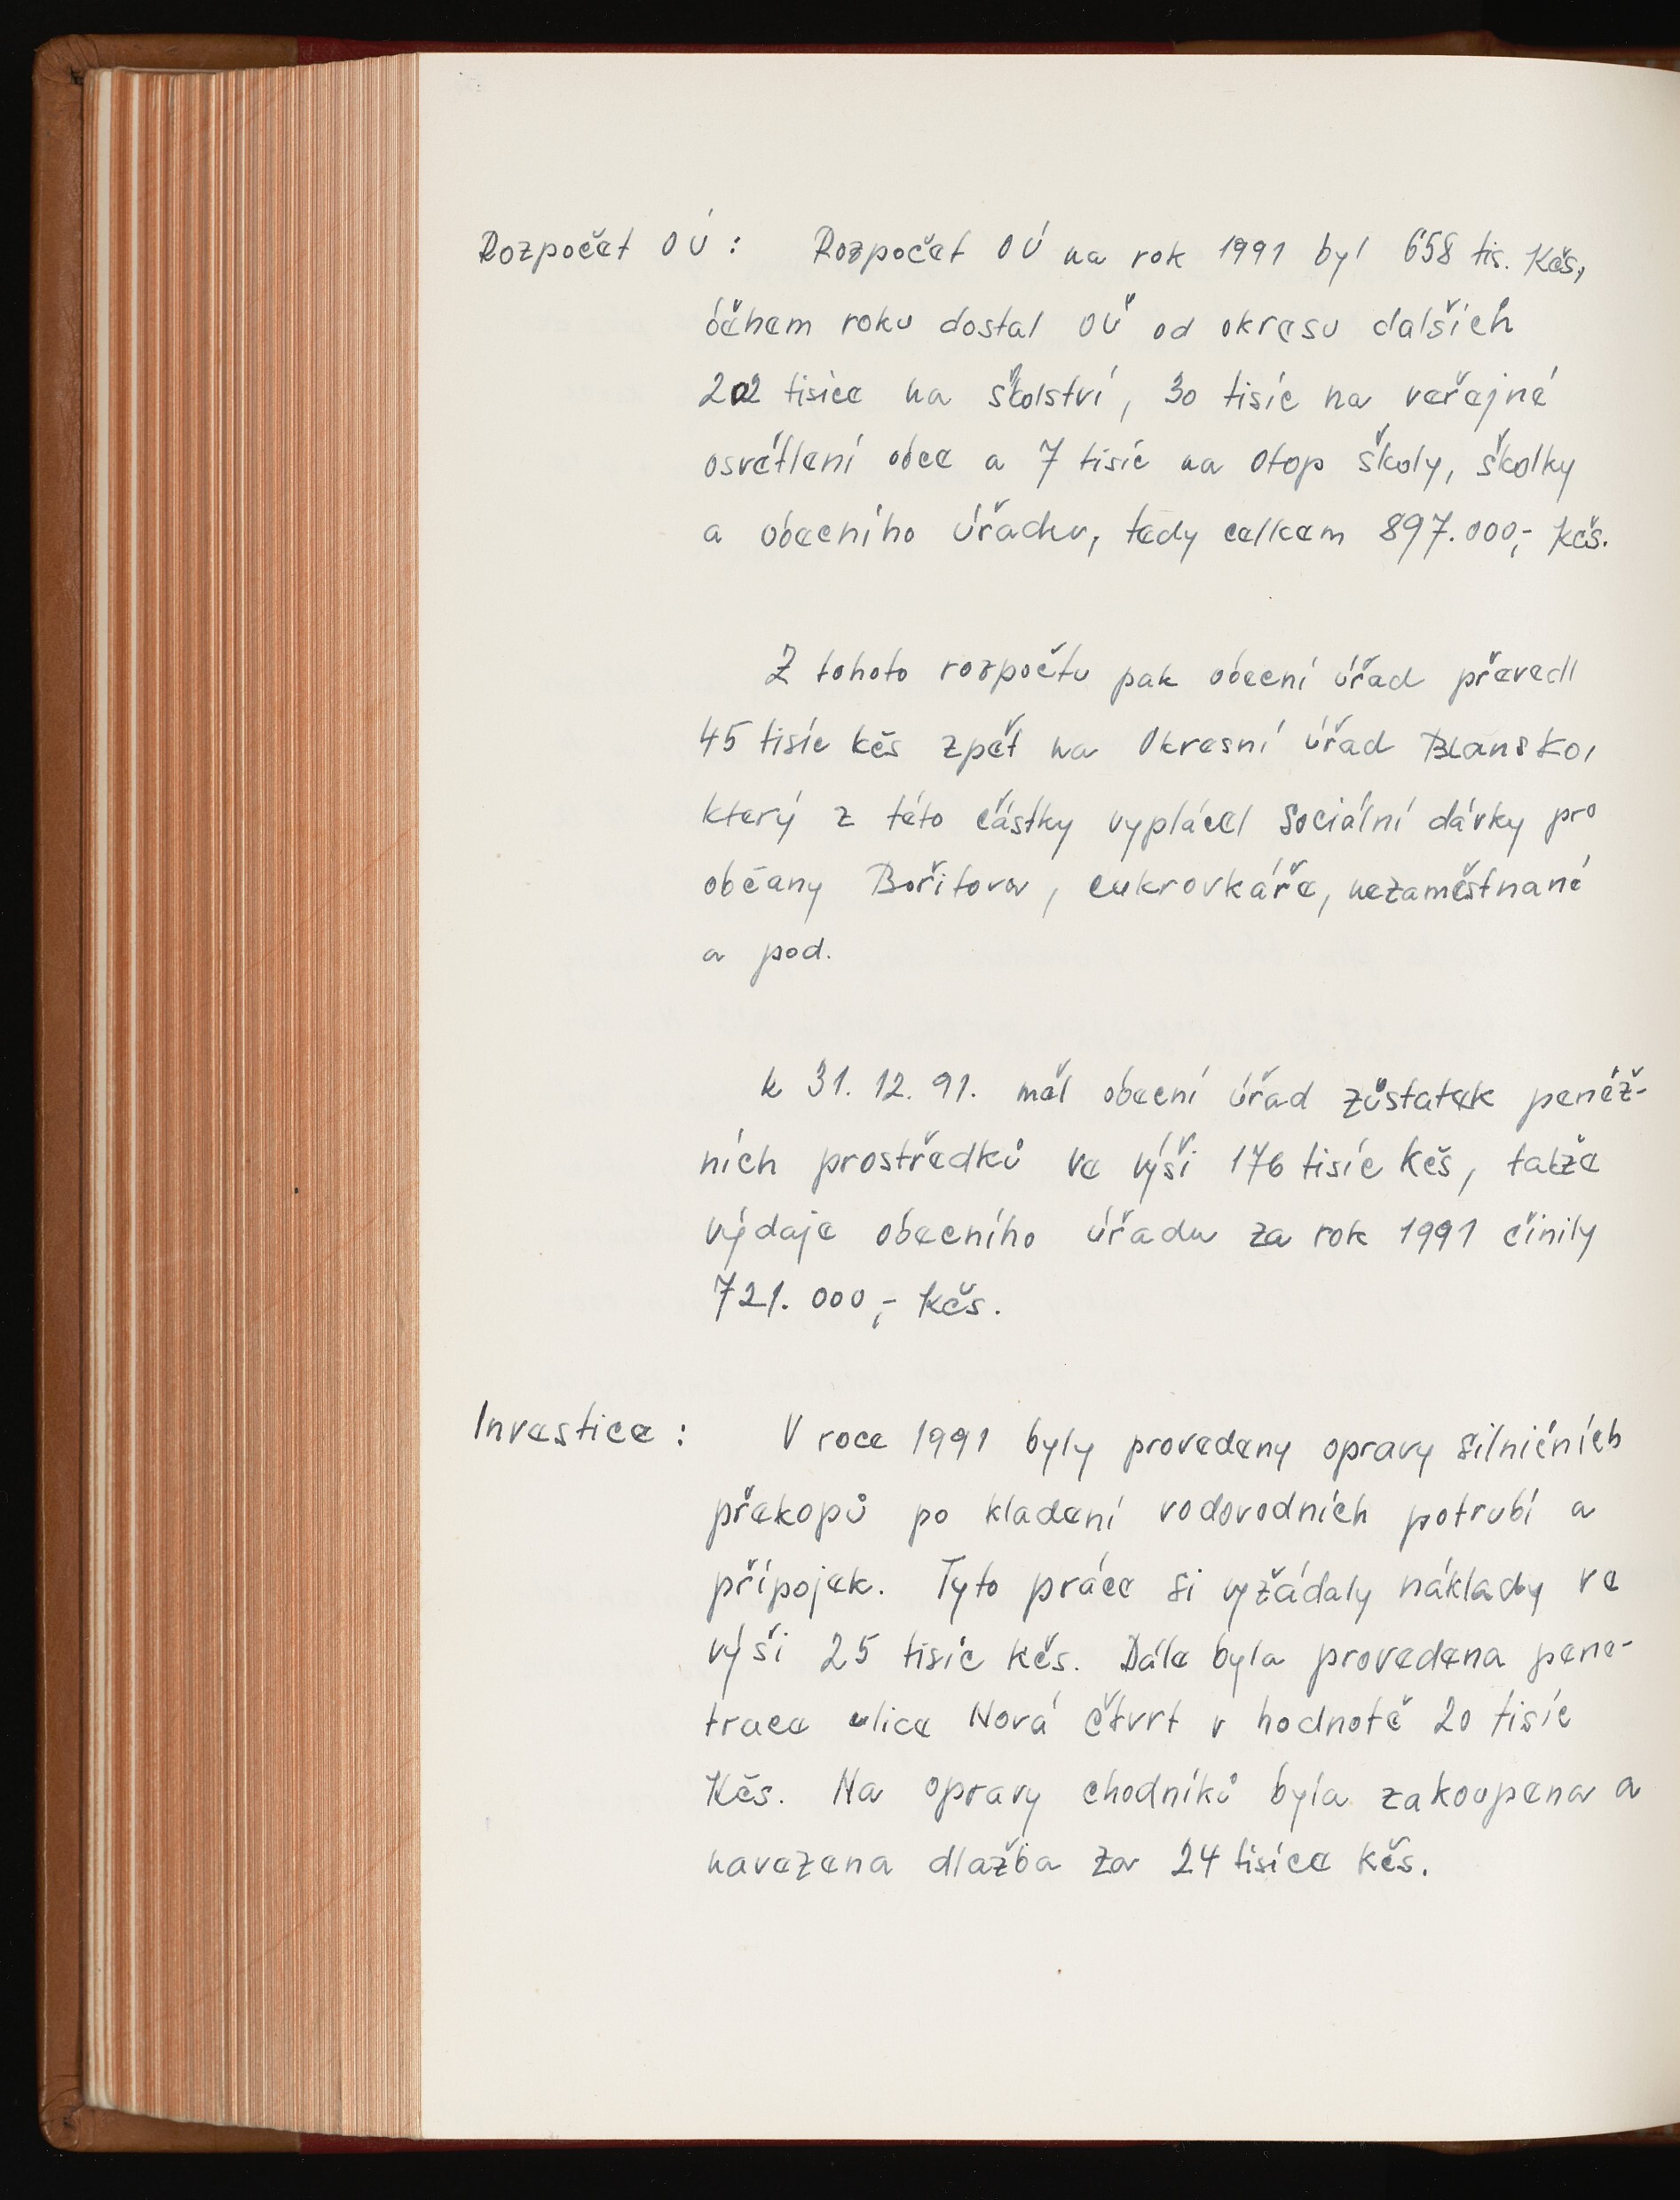 Rozpočet OÚ: Rozpočet OÚ na rok 1991 byl 658 tis. Kčs,
během roku dostal OÚ od okresu dalších
202 tisíce na školství, 30 tisíc na veřejné
osvětlení obce a 7 tisíc na otop školy, školky
a obecního úřadu, tedy celkem 897.000,- Kčs.
Z tohoto rozpočtu pak obecní úřad převedl
45 tisíc Kčs zpět na Okresní úřad Blansko,
který z této částky vyplácel sociální dávky pro
občany Bořitova, cukrovkáře, nezaměstnané
a pod.
k 31. 12. 91. měl obecní úřad zůstatek peněž-
ních prostředků ve výši 176 tisíc Kčs, takže
výdaje obecního úřadu za rok 1991 činily
721.000,- Kčs.
Investice: V roce 1991 byly provedeny opravy silničních
překopů po kladení vodovodních potrubí a
přípojek. Tyto práce si vyžádaly náklady ve
výši 25 tisíc Kčs. Dále byla provedena pene-
trace ulice Nová čtvrt v hodnotě 20 tisíc
Kčs. Na opravy chodníků byla zakoupena a
navezena dlažba za 24 tisíce Kčs.